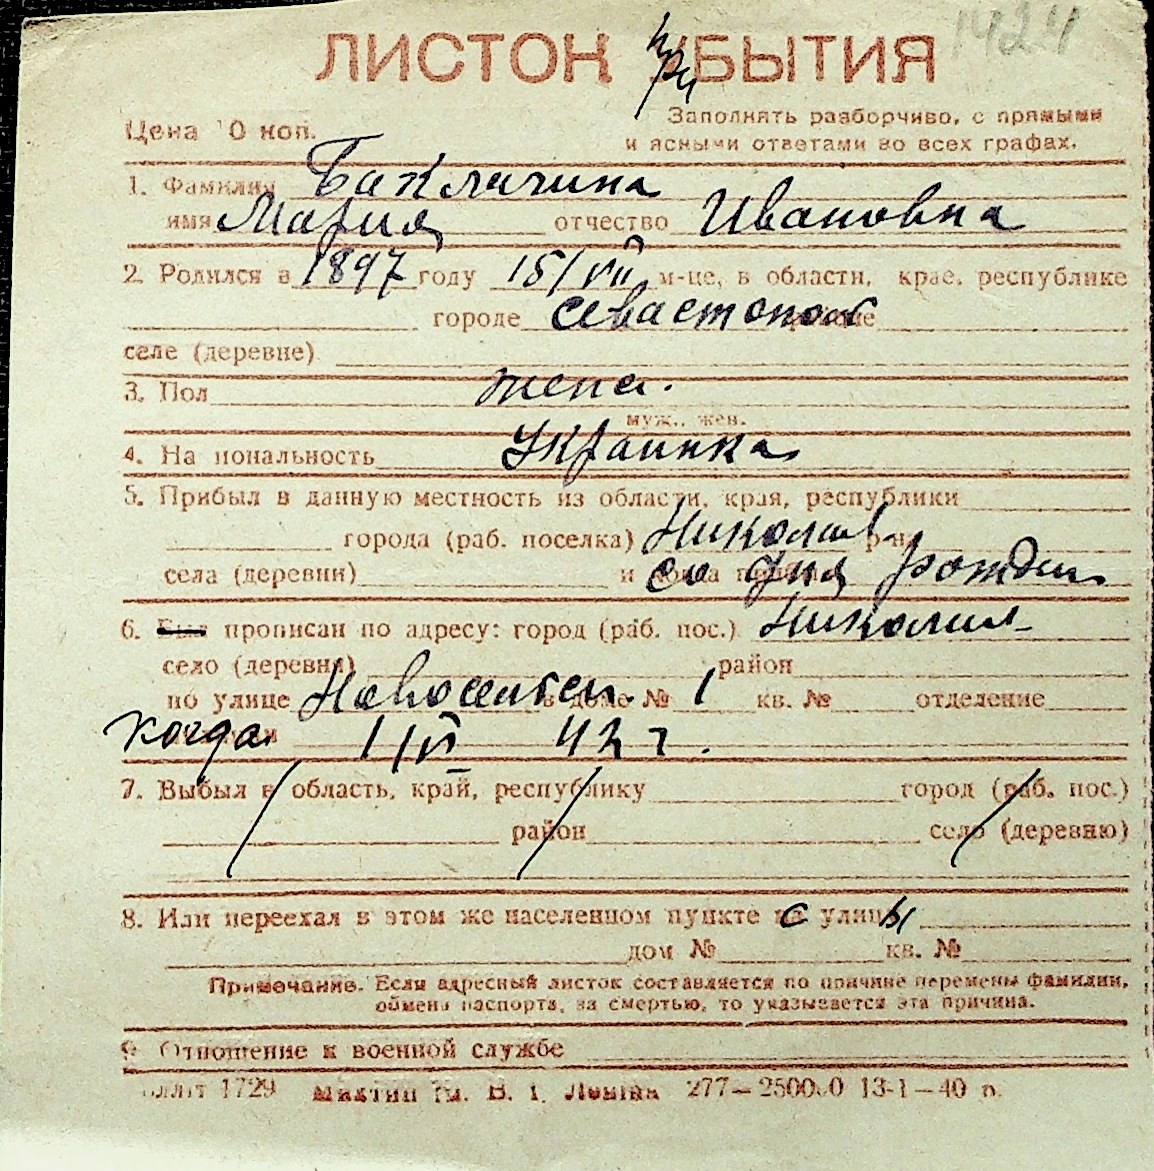 1424
ЛИСТОК при БЫТИЯ
Цена 10 коп.
Заполнять разборчиво, с прямыми
и ясными ответами во всех графах.
1. Фамилия Баклачина
имя Мария отчество Ивановна
2. Родился в 1897 году 15/VII м-це, в области, крае, республике
городе Севастополь
селе (деревне)
3. Пол жена.
муж., жен.
4. Национальность Украинка
5. Прибыл в данную местность из области, края, республики
города (раб. поселка) Николаев р-на
села (деревни) и со дня рожден
6. Был прописан по адресу: город (раб. пос.) Николаев
село (деревня) район
по улице в доме № 1 кв. № отделение
когда 1/VI 42 г.
7. Выбыл в область, край, республику город (раб. пос.)
район село (деревню)
8. Или переехал в этом же населенном пункте с улицы
дом № кв. №
Примечание. Если адресный листок составляется по причине перемены фамилии,
обмена паспорта, за смертью, то указывается эта причина.
9. Отношение к военной службе
1729 277—250000 13-1—40 р.